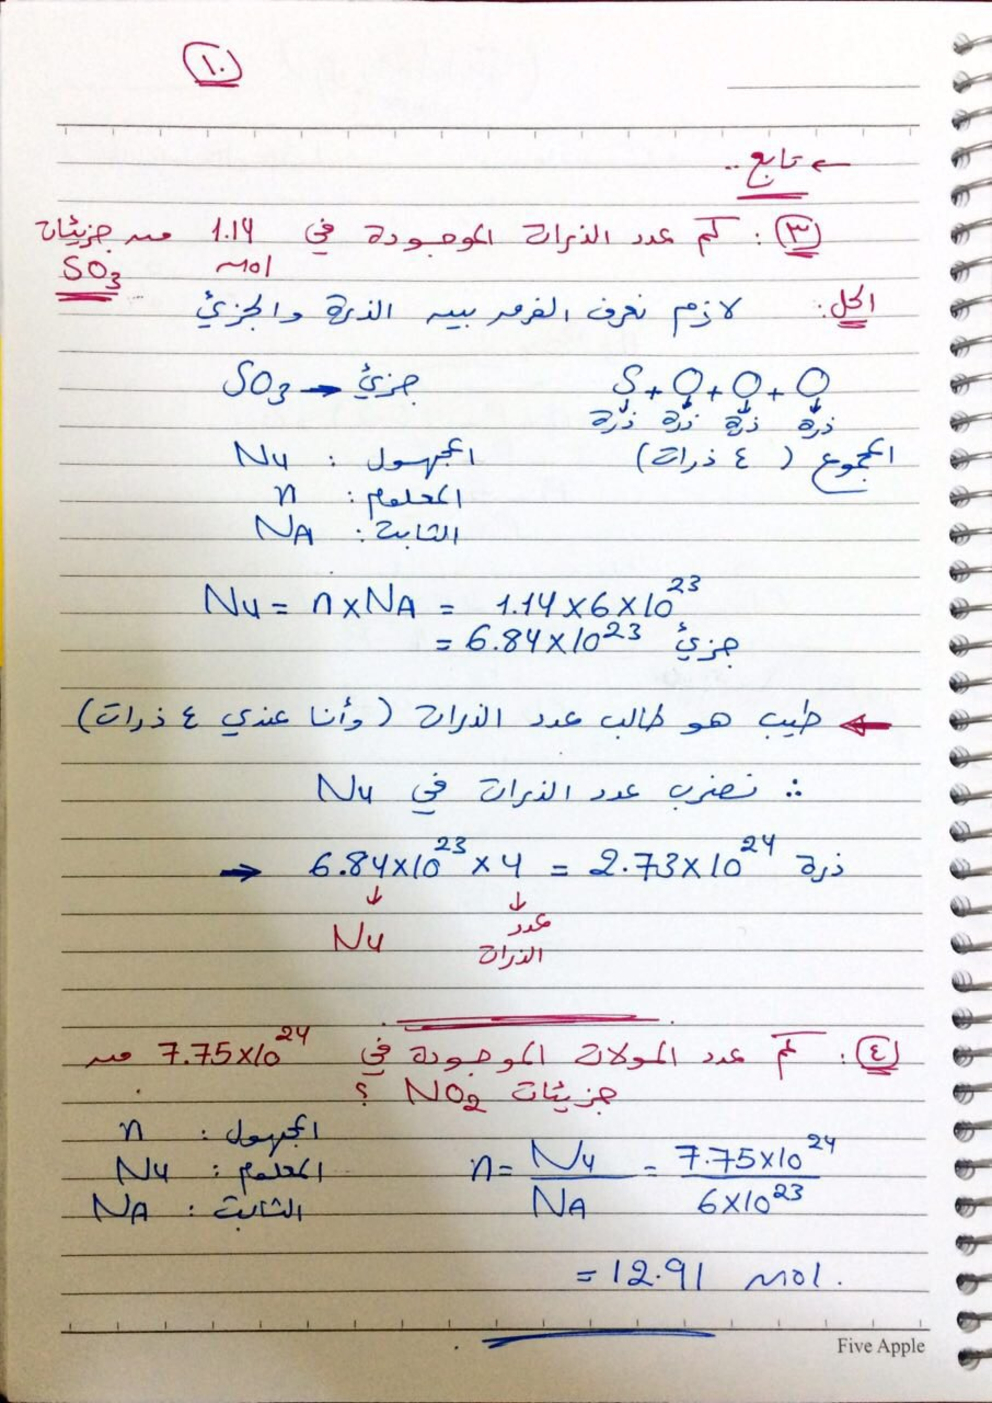 ١٠
← تابع ..
٣ : كم عدد الذرات الموجودة في 1.14 mol من جزيئات SO3
الحل : لازم نعرف الفرق بين الذرة والجزئ
SO3 → جزئ S + O + O + O
ذرة ذرة ذرة ذرة
المجهول : Nu المجموع ( ٤ ذرات )
المعلوم : n
الثابت : NA
Nu = n × NA = 1.14 × 6 × 10^23
= 6.84 × 10^23 جزئ
← طيب هو طالب عدد الذرات ( وأنا عندي ٤ ذرات )
∴ نضرب عدد الذرات في Nu
→ 6.84 × 10^23 × 4 = 2.73 × 10^24 ذرة
↓ ↓
Nu عدد الذرات
٤ : كم عدد المولات الموجودة في 7.75 × 10^24 من
جزيئات NO2 ؟
المجهول : n
المعلوم : Nu
الثابت : NA
n = Nu / NA = 7.75 × 10^24 / 6 × 10^23
= 12.91 mol.
Five Apple